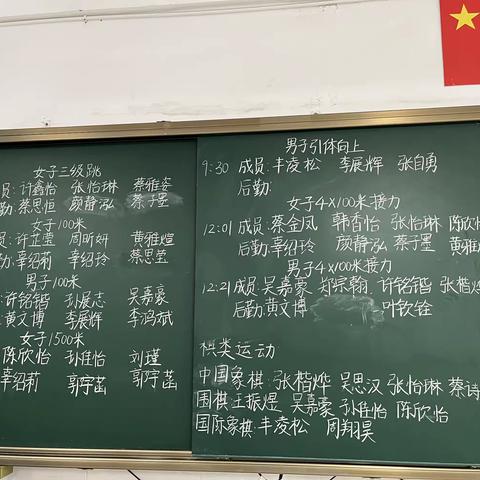 女子三级跳
员:许鑫怡 张怡琳 蔡雅姿
勤:蔡思恒 颜静泓 蔡子墨
女子100米
员:许芷莹 周昕妍 黄雅煊
勤:辛绍莉 辛绍玲 蔡思莹
男子100米
:许铭锴 孙展志 吴嘉豪
:黄文博 李展辉 李鸿斌
女子1500米
陈欣怡 孙佳怡 刘瑾
辛绍莉 郭宇菡 郭宇菡
男子引体向上
9:30 成员:丰凌松 李展辉 张自勇
后勤:
女子4×100米接力
12:01 成员:蔡金凤 韩香怡 张怡琳 陈欣
后勤:辛绍玲 颜静泓 蔡子墨 黄雅
男子4×100米接力
12:21 成员:吴嘉豪 郑宗翰 许铭锴 张楷烨
后勤:黄文博 叶钦铨
棋类运动
中国象棋:张楷烨 吴思汉 张怡琳 蔡诗
围棋:王振煜 吴嘉豪 孙佳怡 陈欣怡
国际象棋:丰凌松 周翔昊